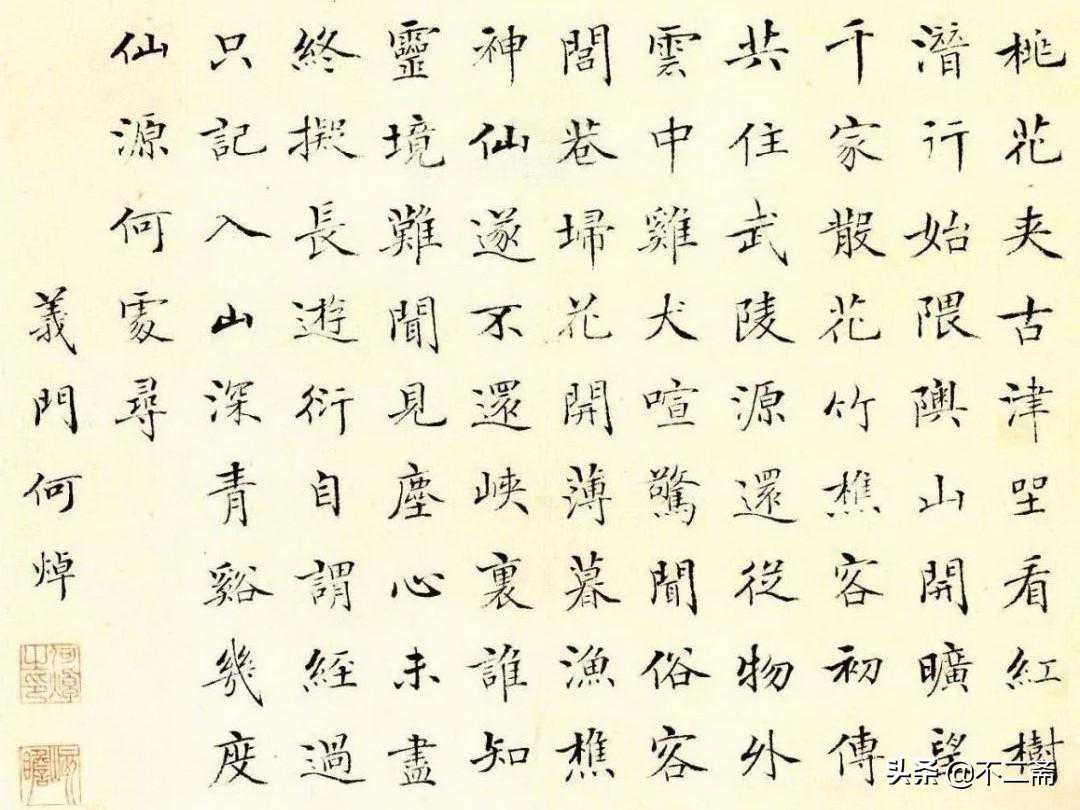 桃花夹古津坐看紅樹
潛行始隈隩山開曠望
千家散花竹樵客初傳
共住武陵源還從物外
雲中雞犬喧驚聞俗客
閭巷埽花開薄暮漁樵
神仙遂不還峽裏誰知
靈境難聞見塵心未盡
終擬長遊衍自謂經過
只記入山深青谿幾度
仙源何處尋
義門何焯
何焯之印
屺瞻
头条 @不二斋